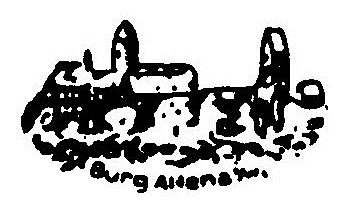 Burg Altena